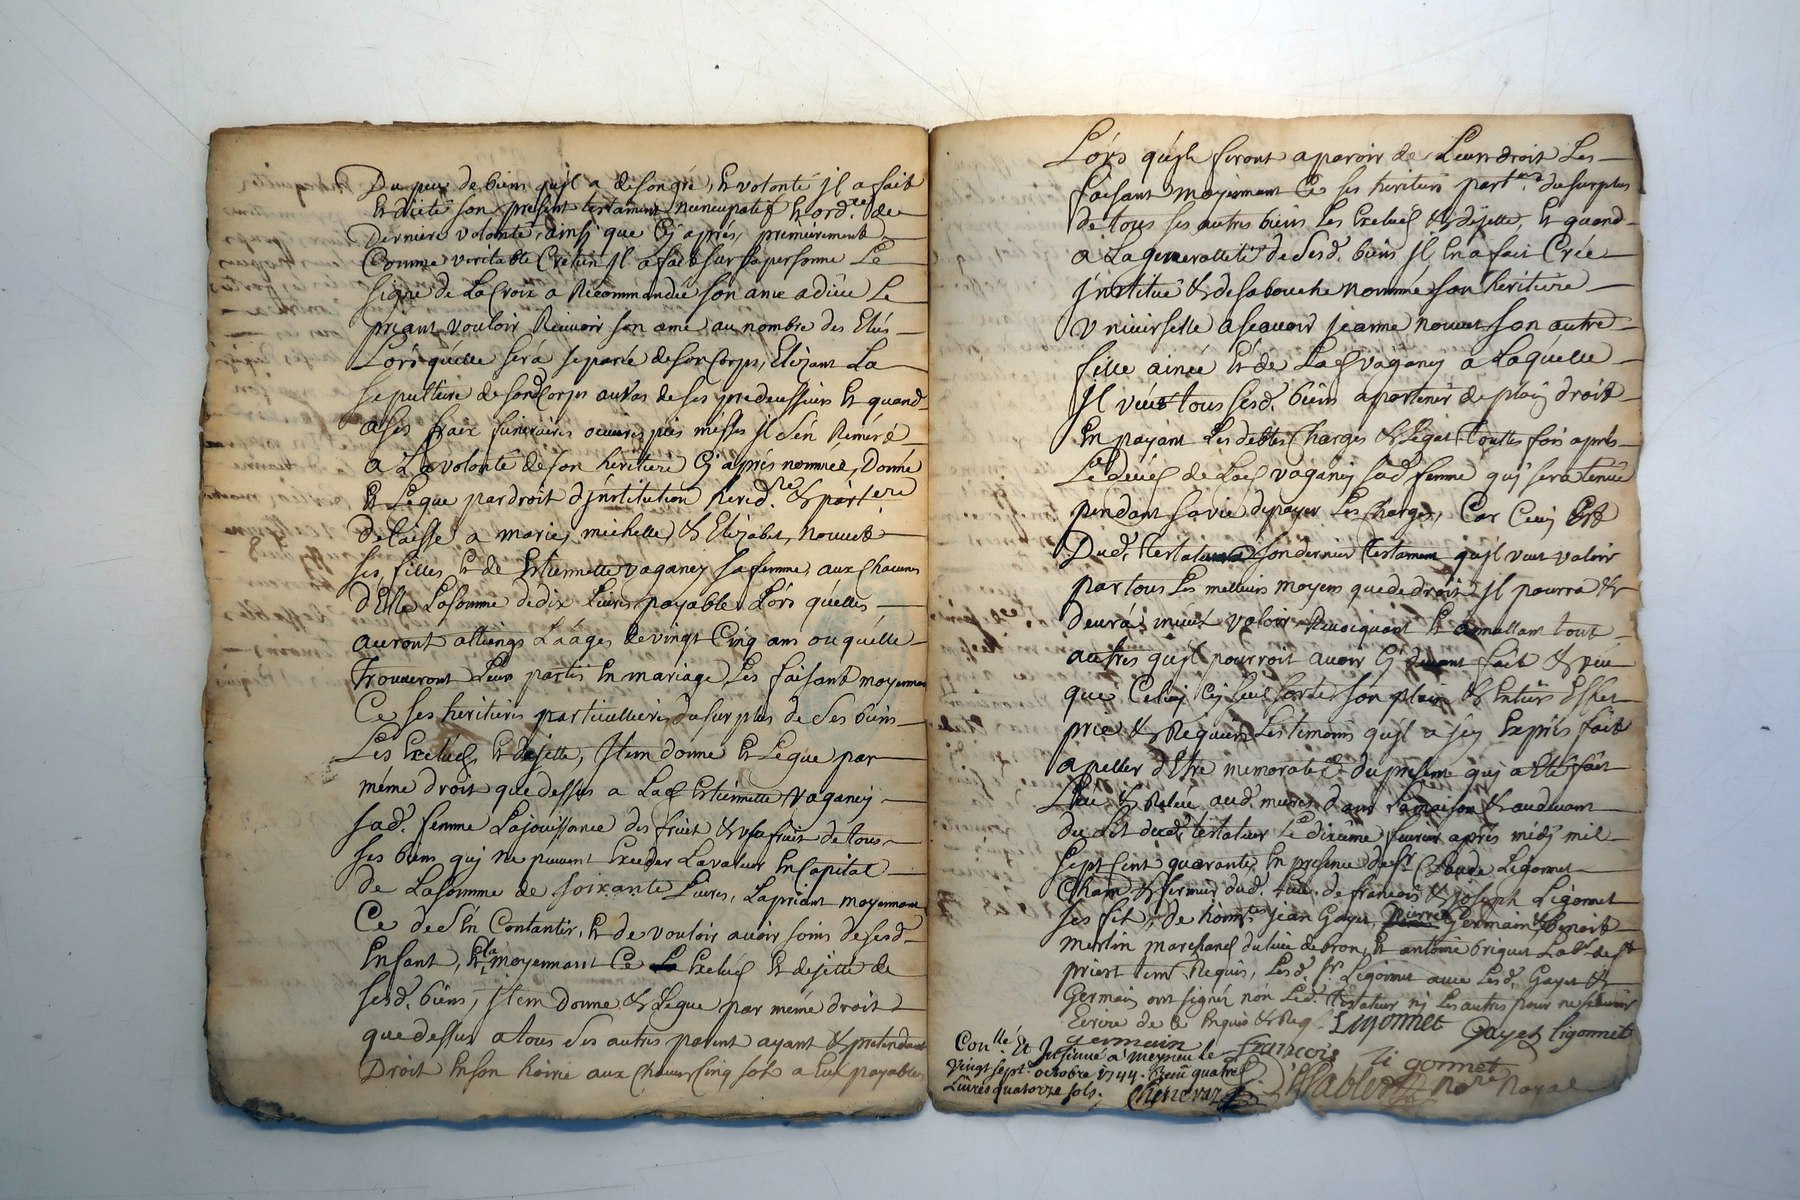 Du peu de biens quil a de son gré, Et volonté jl a fait
Et dicté son present testament nuncupatif Et ord.re de
Derniere volonté, ainsj que Cj après, premierement
Comme veritable Cretien jl a fait sur sa personne Le
signe de La Croix a Recommandée son ame a dieu Le
priant vouloir Recevoir son ame au nombre des Elús
Lors quelle será separée de son Corps, Elizant La
sepulture de sond Corps au vas de ses predeussieurs Et quand
a ses fraix funeraires oeuvres pies messes jl s'én Remére
a La volonté de son heritiere Cj après nommée, Donne
Et Legue par droit d'jnstitution hered.re & part.ere
Delaisse a marie, michelle, & Elizabet, nouvet
ses filles Et de Estiennette vaganey sa femme, aux Chacunes
d'Elle La somme de dix Livres payable Lórs quelles
auront attiengs L'aáges de vingt Cinq ans ou quélle
Trouveront Leur partis En mariage, Les faisant moyennant
Ce ses heritieres particullieres du surplus de ses biens
Les Exclud, Et dejette, Jtem donne Et Legue par
méme droit que dessus a Lad Estiennette Vaganey
sad. femme La jouissance des fruit & usufruit de tous
ses biens quj ne peuvent Exceder La valeur En Capital
de La somme de soixante Livres, La priant moyennant
Ce de s'én Contanter, Et de vouloir avoir soins de sesd
Enfant, Et la moyennant Ce Exclud Et dejette de
sesd. biens, Jtem Donne & Legue par méme droit
que dessus a tous ses autres parent ayant & pretendant
Droit En son hoirie aux Chacuns Cinq sols a Eux payables
Lórs quils seront aparoir de Leurs droit Les
faisant moyennant Ce ses heritiers part.ers du surplus
de tous ses autres biens Les Exclud & dejette, Et quand
a La generallitté de sesd. biens jl En a fait Crée
jnstitué & de sa bouche nommé son heritiere
vniverselle a scavoir jeanne nouvet son autre
fille ainée Et de Lad vaganey a Laquelle
jl veút tous sesd. biens apartenir de plain droit
En payant Les debtes Charges & Legat Touttes fois après
Le decés de Lad vaganey sad femme quj sera tenue
pendant sa vie de payer Les Charges, Car Cecy Est
Dud. testateur son dernier testament qujl veut valoir
par tous Les meilleurs moyens que de droit jl pourra &
devrá mieux valoir Revocquant Et annullant tout
autres qujl pourroit avoir Cj devant fait & veu
que Celuy Cy seul sorte son plain & Entiers Effet
prie & Requiers Les temoins qujl a jcy Exprès fait
apeller d'Etre memoratif du present quj a Eté fait
Leu & Releu aud. mures dans La maison & au devant
du Lit dud. testateur Le dixiéme fevrier après midj mil
sept Cent quarante, En presence de sr Claude Ligonnet
Cham & fermier dud. Lieu, de francois & joseph Ligonnet
ses fils, de honn.tes jean Gayet, pierre Germain & benoit
merlin marchand du lieu de bron, Et antoine briquet Lab.r de st
priest tem. Requis, Lesd. sr. Ligonnet avec Lesd. Gayet &
Germain ont signés non Led. testateur nj Les autres pour ne scavoir
Ecrire de Ce Enquis & Req. Ligonnet Gayet Ligonnet
germain francois Ligonnet
Con.llé Et Jnsinué a meyzieu le
vingt sept.e octobre 1744. Receu quatre
Livres quatorze sols. Chenevaz
Sablon no.re Royal